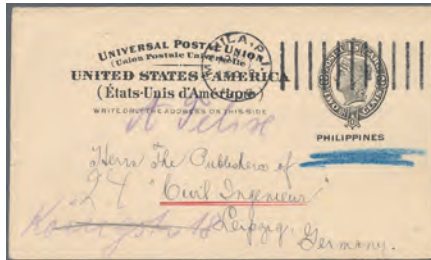 UNIVERSAL POSTAL UNION
(Union Postale Universelle)
UNITED STATES OF AMERICA
(États-Unis d'Amérique)
WRITE ONLY THE ADDRESS ON THIS SIDE
MANILA, P.I.
PHILIPPINES
A Felix
Herrn The Publishers of
"Civil Ingenieur"
Leipzig,
Germany.